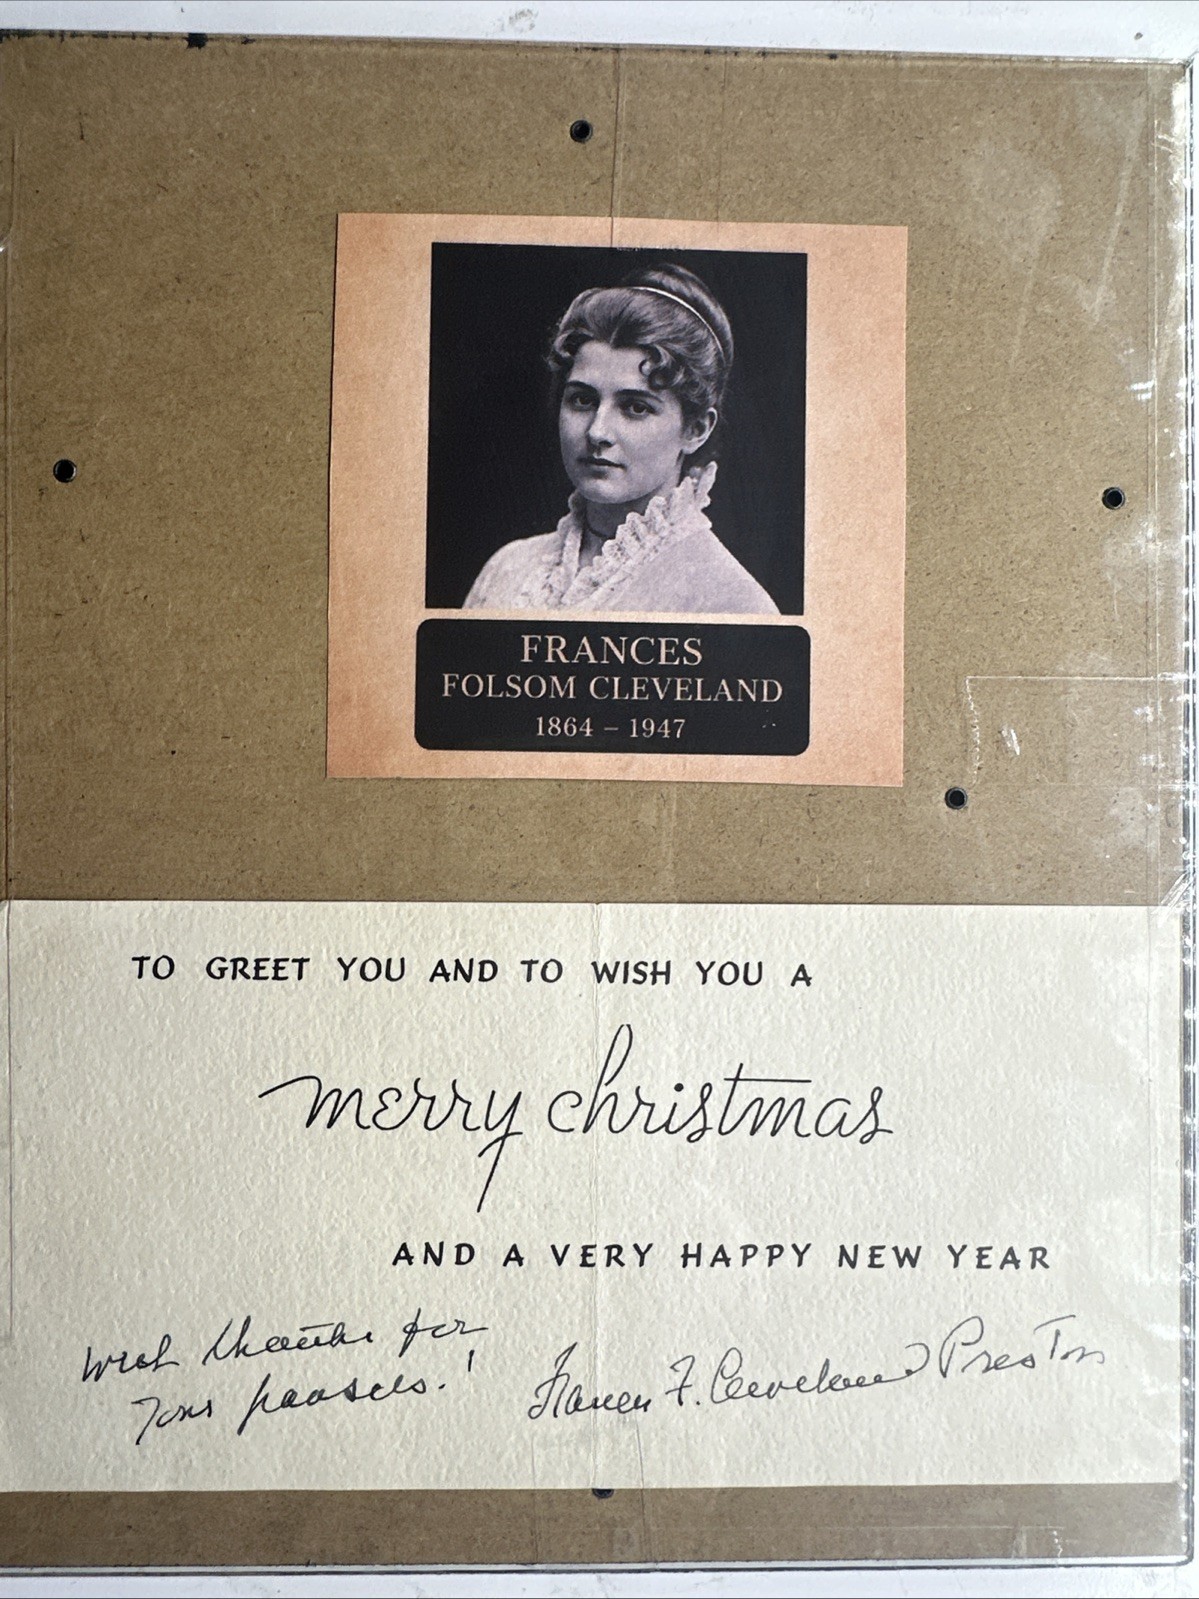 FRANCES
FOLSOM CLEVELAND
1864 – 1947
TO GREET YOU AND TO WISH YOU A
merry christmas
AND A VERY HAPPY NEW YEAR
With thanks for
Frances F. Cleveland Preston